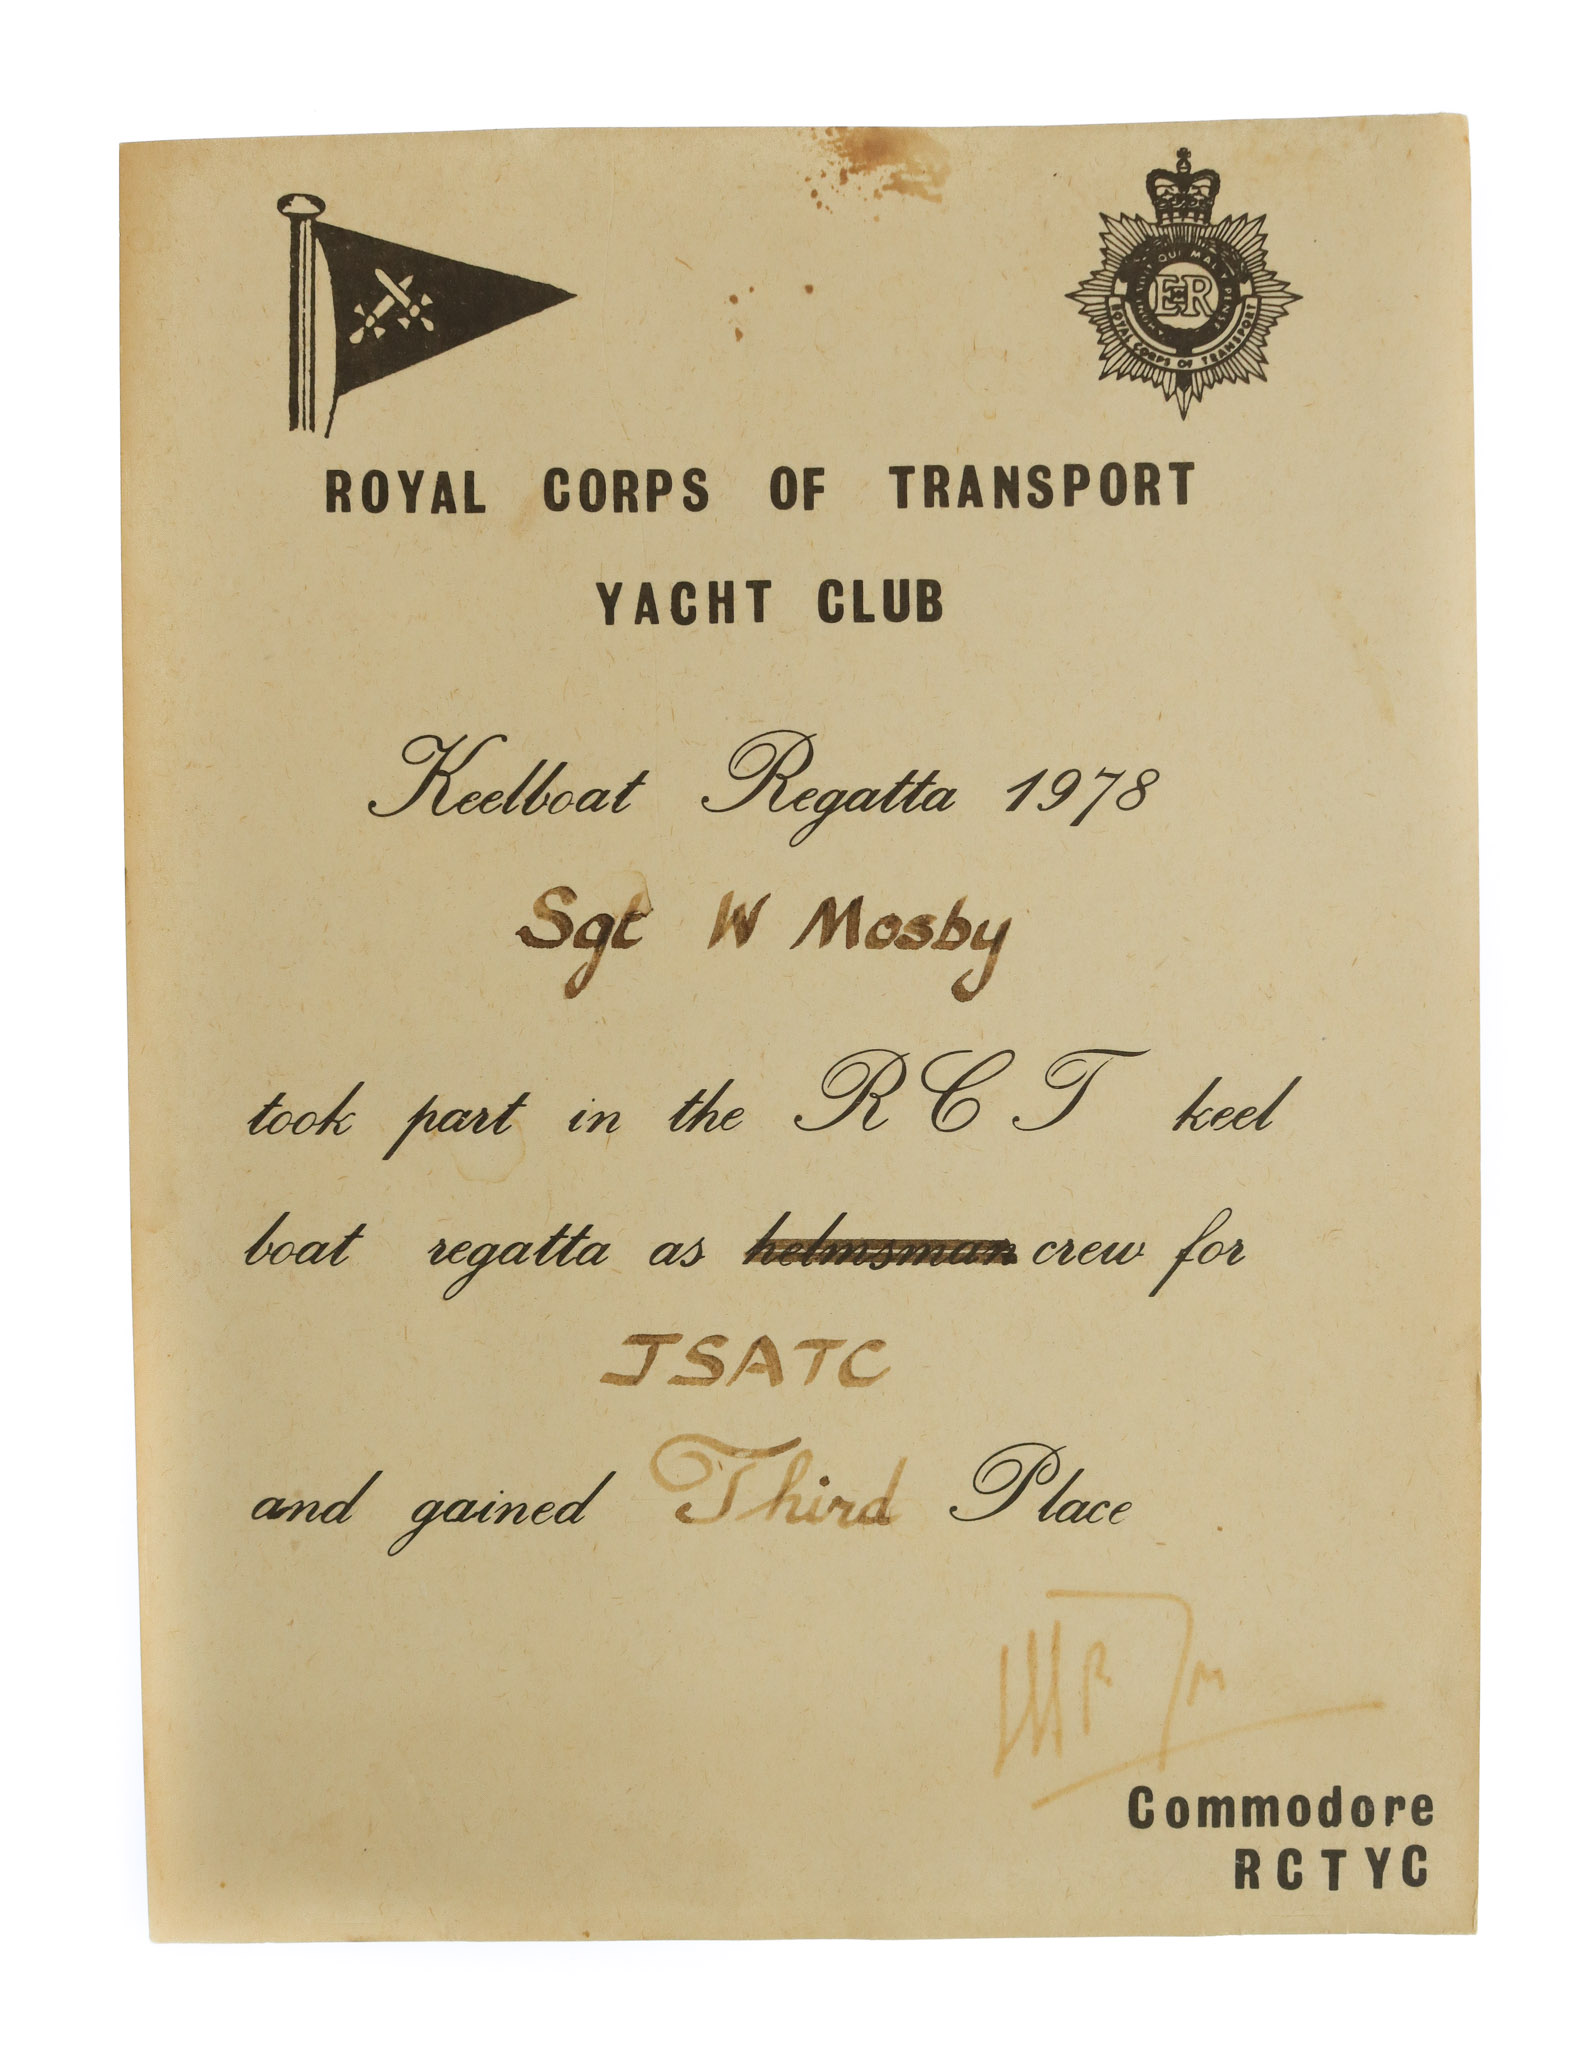 HONI SOIT QUI MAL Y PENSE
EIIR
ROYAL CORPS OF TRANSPORT
ROYAL CORPS OF TRANSPORT
YACHT CLUB
Keelboat Regatta 1978
Sgt W Mosby
took part in the R C T keel
boat regatta as helmsman crew for
JSATC
and gained Third Place
Commodore
RCTYC